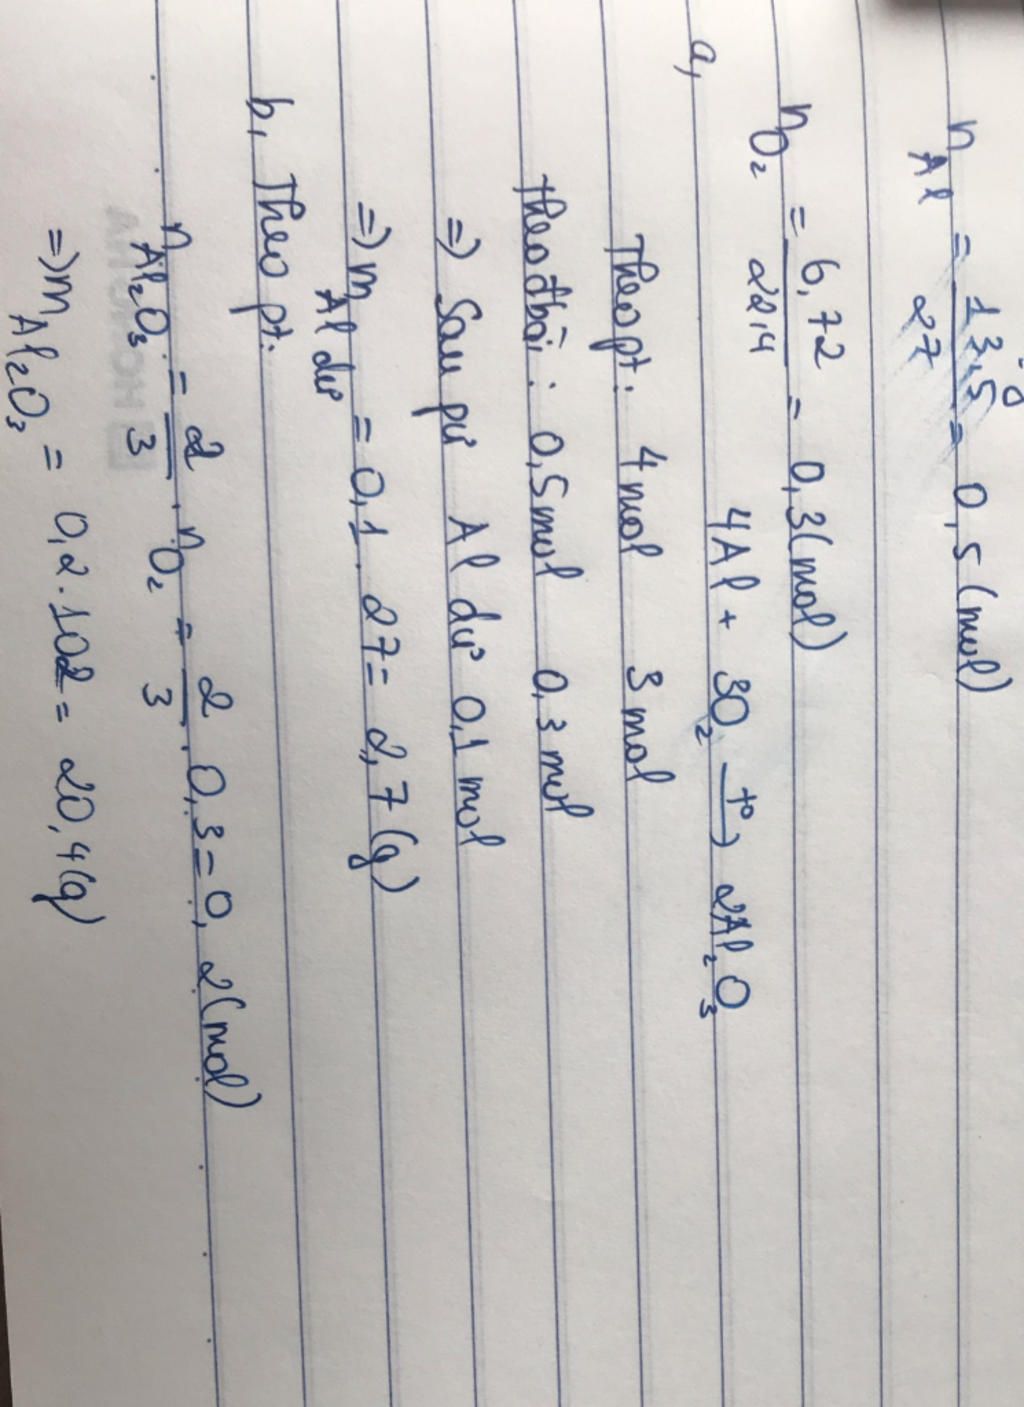 n Al = 13,5 / 27 = 0,5 (mol)
n O₂ = 6,72 / 22,4 = 0,3 (mol)
a, 4Al + 3O₂ —t°→ 2Al₂O₃
Theo pt: 4 mol 3 mol
Theo đbài: 0,5 mol 0,3 mol
=> Sau pư Al dư 0,1 mol
=> m Al dư = 0,1 . 27 = 2,7 (g)
b, Theo pt:
n Al₂O₃ = 2/3 . n O₂ = 2/3 . 0,3 = 0,2 (mol)
=> m Al₂O₃ = 0,2 . 102 = 20,4 (g)